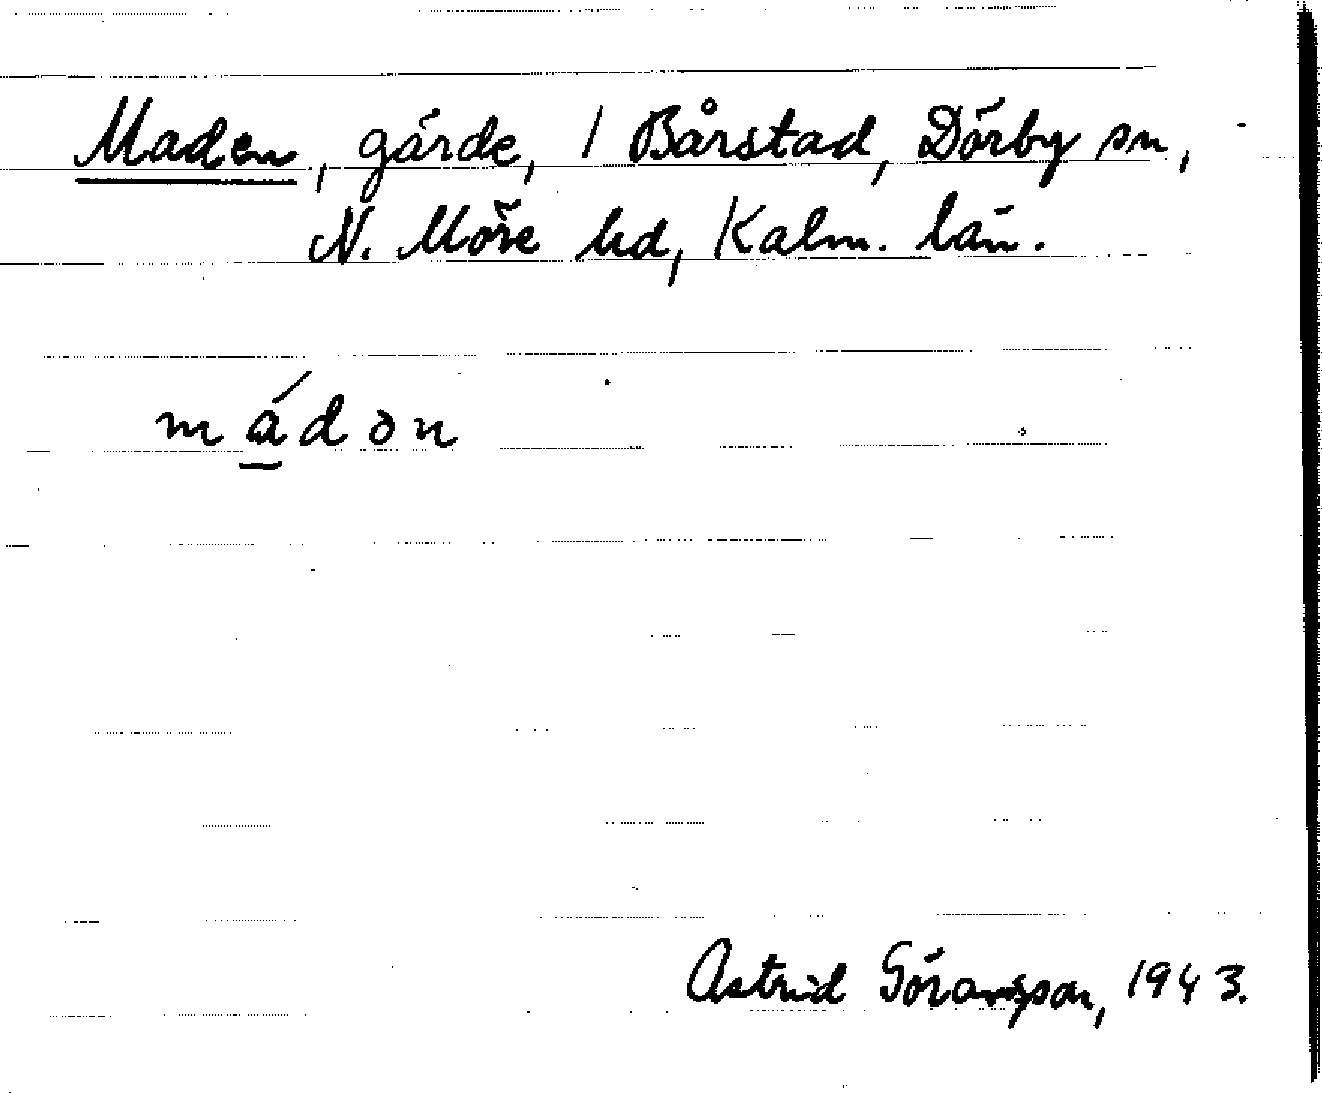 Maden, gärde, 1 Bårstad, Dörby sn,
N. Möre hd, Kalm. län.
mádən
Astrid Göransson, 1943.